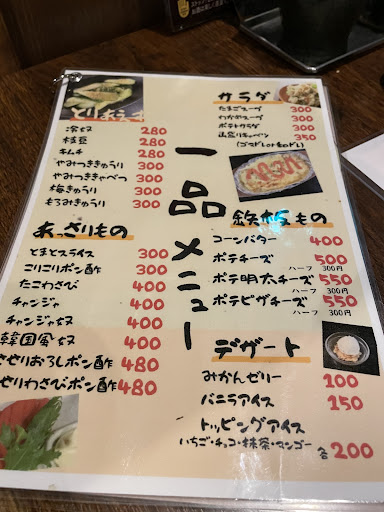 一品メニュー
とりあえず
冷奴 280
枝豆 280
キムチ 280
やみつききゅうり 300
やみつききゃべつ 300
梅きゅうり 300
もろみきゅうり 300
あっさりもの
とまとスライス 300
こりこりポン酢 300
たこわさび 400
チャンジャ 400
チャンジャ奴 400
韓国風奴 400
させりおろしポン酢 480
せりわさびポン酢 480
サラダ
たまごスープ 300
わかめスープ 300
ポテトサラダ 300
山盛りキャベツ 350
(ゴマドレorわドレ)
鉄板もの
コーンバター 400
ポテチーズ 500
ハーフ 300円
ポテ明太チーズ 550
ハーフ 300円
ポテピザチーズ 550
ハーフ 300円
デザート
みかんゼリー 100
バニラアイス 150
トッピングアイス
いちご・チョコ・抹茶・マンゴー 各200